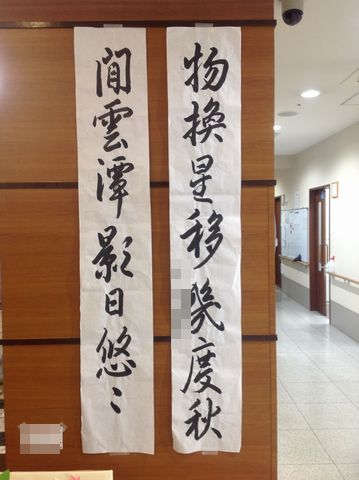 物換星移幾度秋
閒雲潭影日悠〻